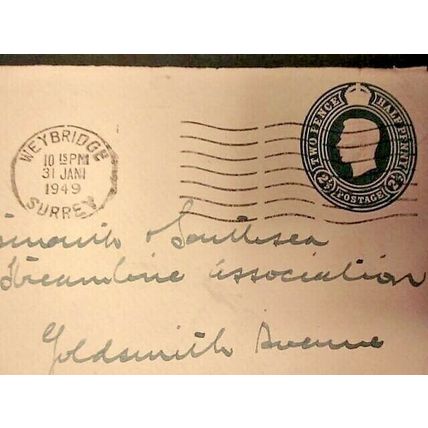 WEYBRIDGE
10 15 PM
31 JAN
1949
SURREY
TWO PENCE HALF PENNY
2½ POSTAGE 2½
smouth & Southsea
Streamline Association
Goldsmith Avenue